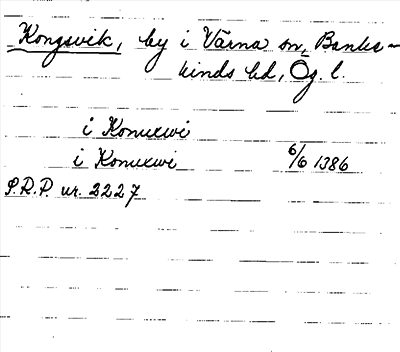 Kongsvik, by i Värna sn, Banke-
kinds hd, Ög. l.
i Konuxwi
i Konuxwi 6/6 1386
S.R.P. nr. 2227